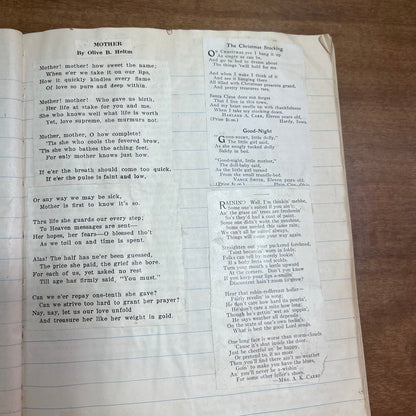 MOTHER
By Olive B. Heltm
Mother! mother! how sweet the name;
When e'er we take it on our lips,
How it quickly kindles every flame
Of love so pure and deep within.
Mother! mother! Who gave us birth,
Her life at stake for you and me.
She who knows well what life is worth
Yet, love supreme, she murmurs not.
Mother, mother, O how complete!
'Tis she who cools the fevered brow,
'Tis she who bathes the aching feet.
For only mother knows just how.
If e'er the breath should come too quick,
If e'er the pulse is faint and low,
Or any way we may be sick,
Mother is first to know it's so.
Thru life she guards our every step;
To Heaven messages are sent—
Her hopes, her fears—O blessed tho't
As we toil on and time is spent.
Alas! The half has ne'er been guessed,
The price she paid, the grief she bore.
For each of us, yet asked no rest
Till age has firmly said, "You must."
Can we e'er repay one-tenth she gave?
Can we strive too hard to grant her prayer?
Nay, nay, let us our love unfold
And treasure her like her weight is gold.
The Christmas Stocking
On Christmas eve I hang it up
As empty as can be,
And go to bed to dream about
The things 'twill hold for me.
And when I wake I think of it
And see it hanging there
All filled with Christmas presents grand,
And pretty treasures rare.
Santa Claus does not forget
That I live in this town,
And my heart swells up with thankfulness
When I take my stocking down.
Margaret A. Carr, Eleven years old.
(Prize $1.00) Hardy, Iowa.
Good-Night
"Good-night, little dolly,"
The little girl said,
As she snugly tucked dolly
Safely in bed.
"Good-night, little mother,"
The doll-baby said,
As the little girl turned
From the small trundle-bed.
Vance Smith, Eleven years old.
(Prize $1.00)
Rainin'? Well, I'm thinkin' mebbe,
Some one's suited if you ain't;
An' the grass an' trees are freshenin'
So's they'd had a coat of paint.
Some one didn't want the sunshine,
Some one needed this same rain;
We can't all be suited always,
Things will come your way again.
Straighten out your puckered forehead,
Taint becomin' worn in folds,
Folks can tell by merely lookin'
If a body frets and scolds.
Turn your mouth a leetle upward
At the corners. Don't you know
If you keep your lips a-smilin'
Discontent hain't room to grow?
Hear that robin-redbreast holler—
Fairly revelin' in song;
He don't care how hard its pourin',
He's cheer'n our way along;
Though he's gettin' wet an' soppin',
He says weather all depends
On the state of one's own feelin's
What is best the good Lord sends.
One long face is worse than storm-clouds
'Cause it's shut inside the door.
Just be cheerful an' be happy,
Or pretend it, if no more
Then you'll find there ain't no weather
Goin' to make you have the blues,
An' you'll never be a-wishin'
For some other feller's shoes.
—Mrs. A. K. Carr